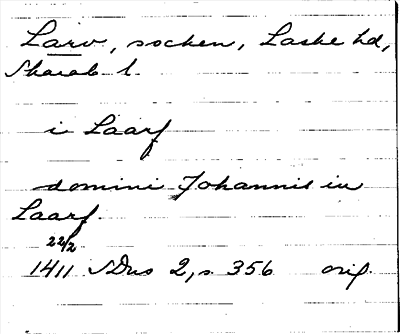 Larv, socken, Laske hd,
Skarab. l.
i Laarf
domini Johannis in
Laarf.
22/2
1411 SDns 2, s. 356 orig.